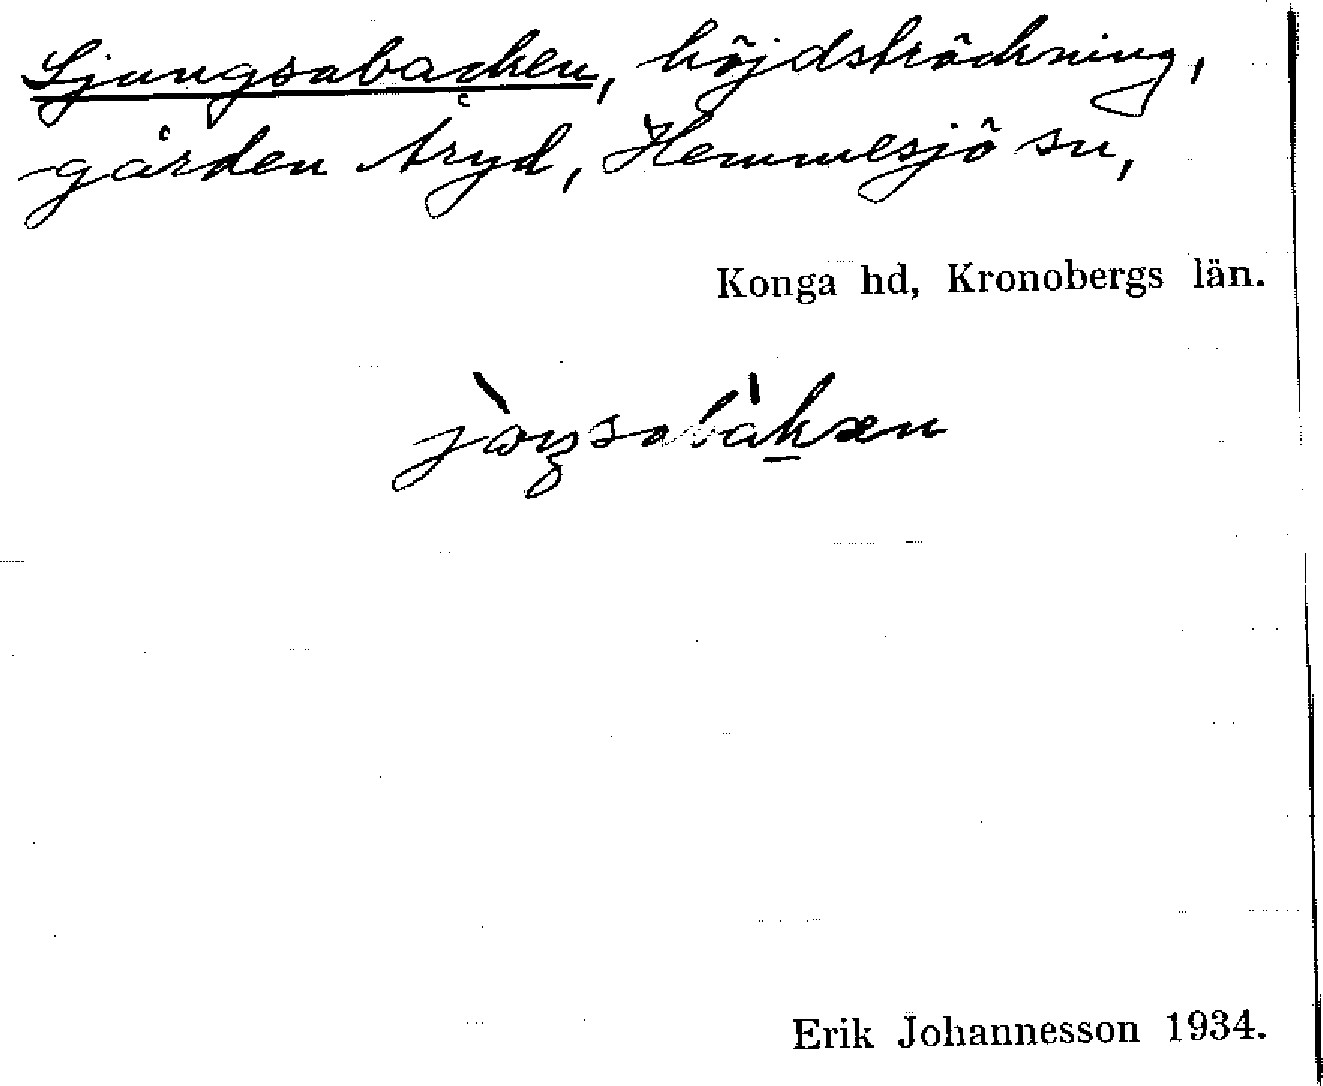 Ljungsabacken, höjdsträckning,
gården Åryd, Hemmesjö sn,
Konga hd, Kronobergs län.
Erik Johannesson 1934.